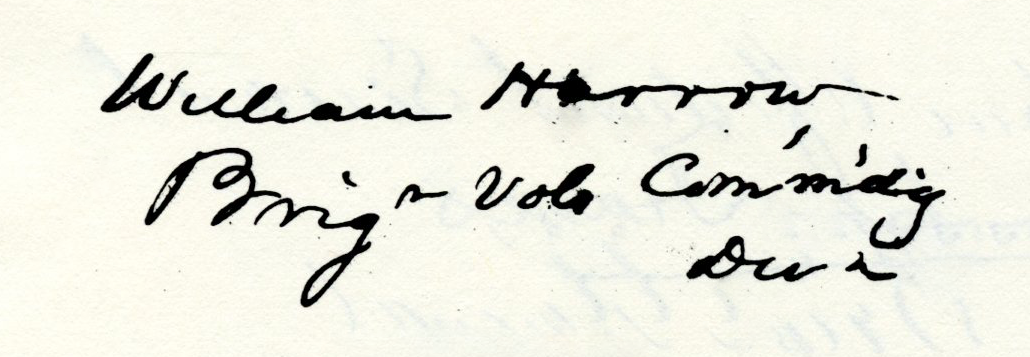 William Harrow
Brig n Vols Com'm'dig
Div n